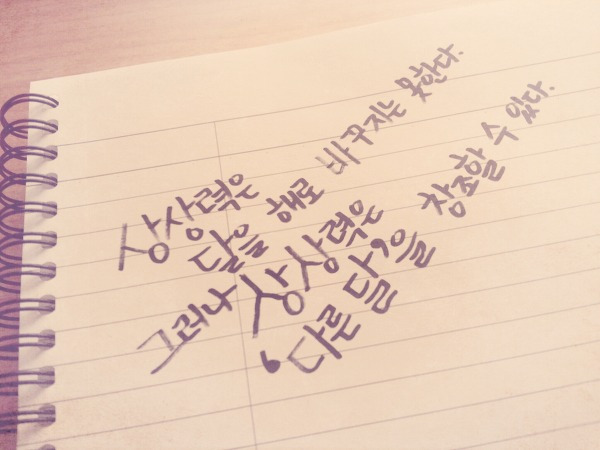 상상력은
달을 해로 바꾸지는 못한다.
그러나 상상력은
'다른 달'을 창조할 수 있다.